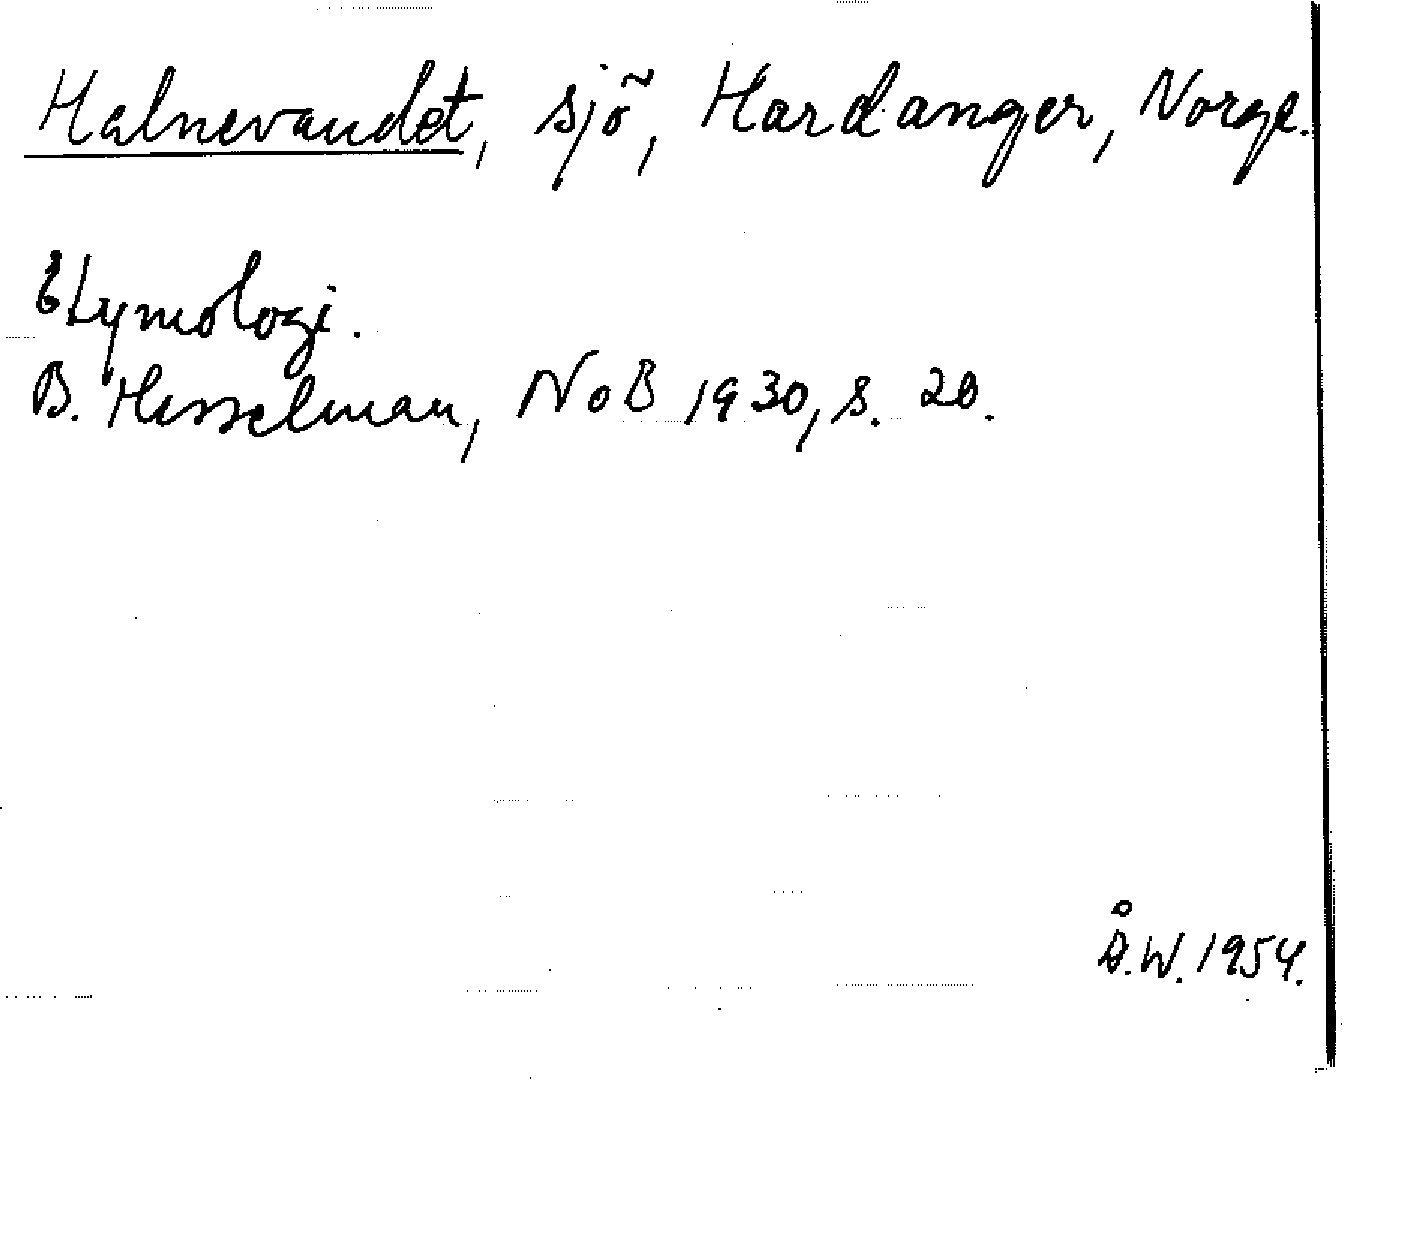 Halnevandet, sjö, Hardanger, Norge.
Etymologi.
B. Hesselman, NoB 1930, s. 20.
Å.W. 1954.